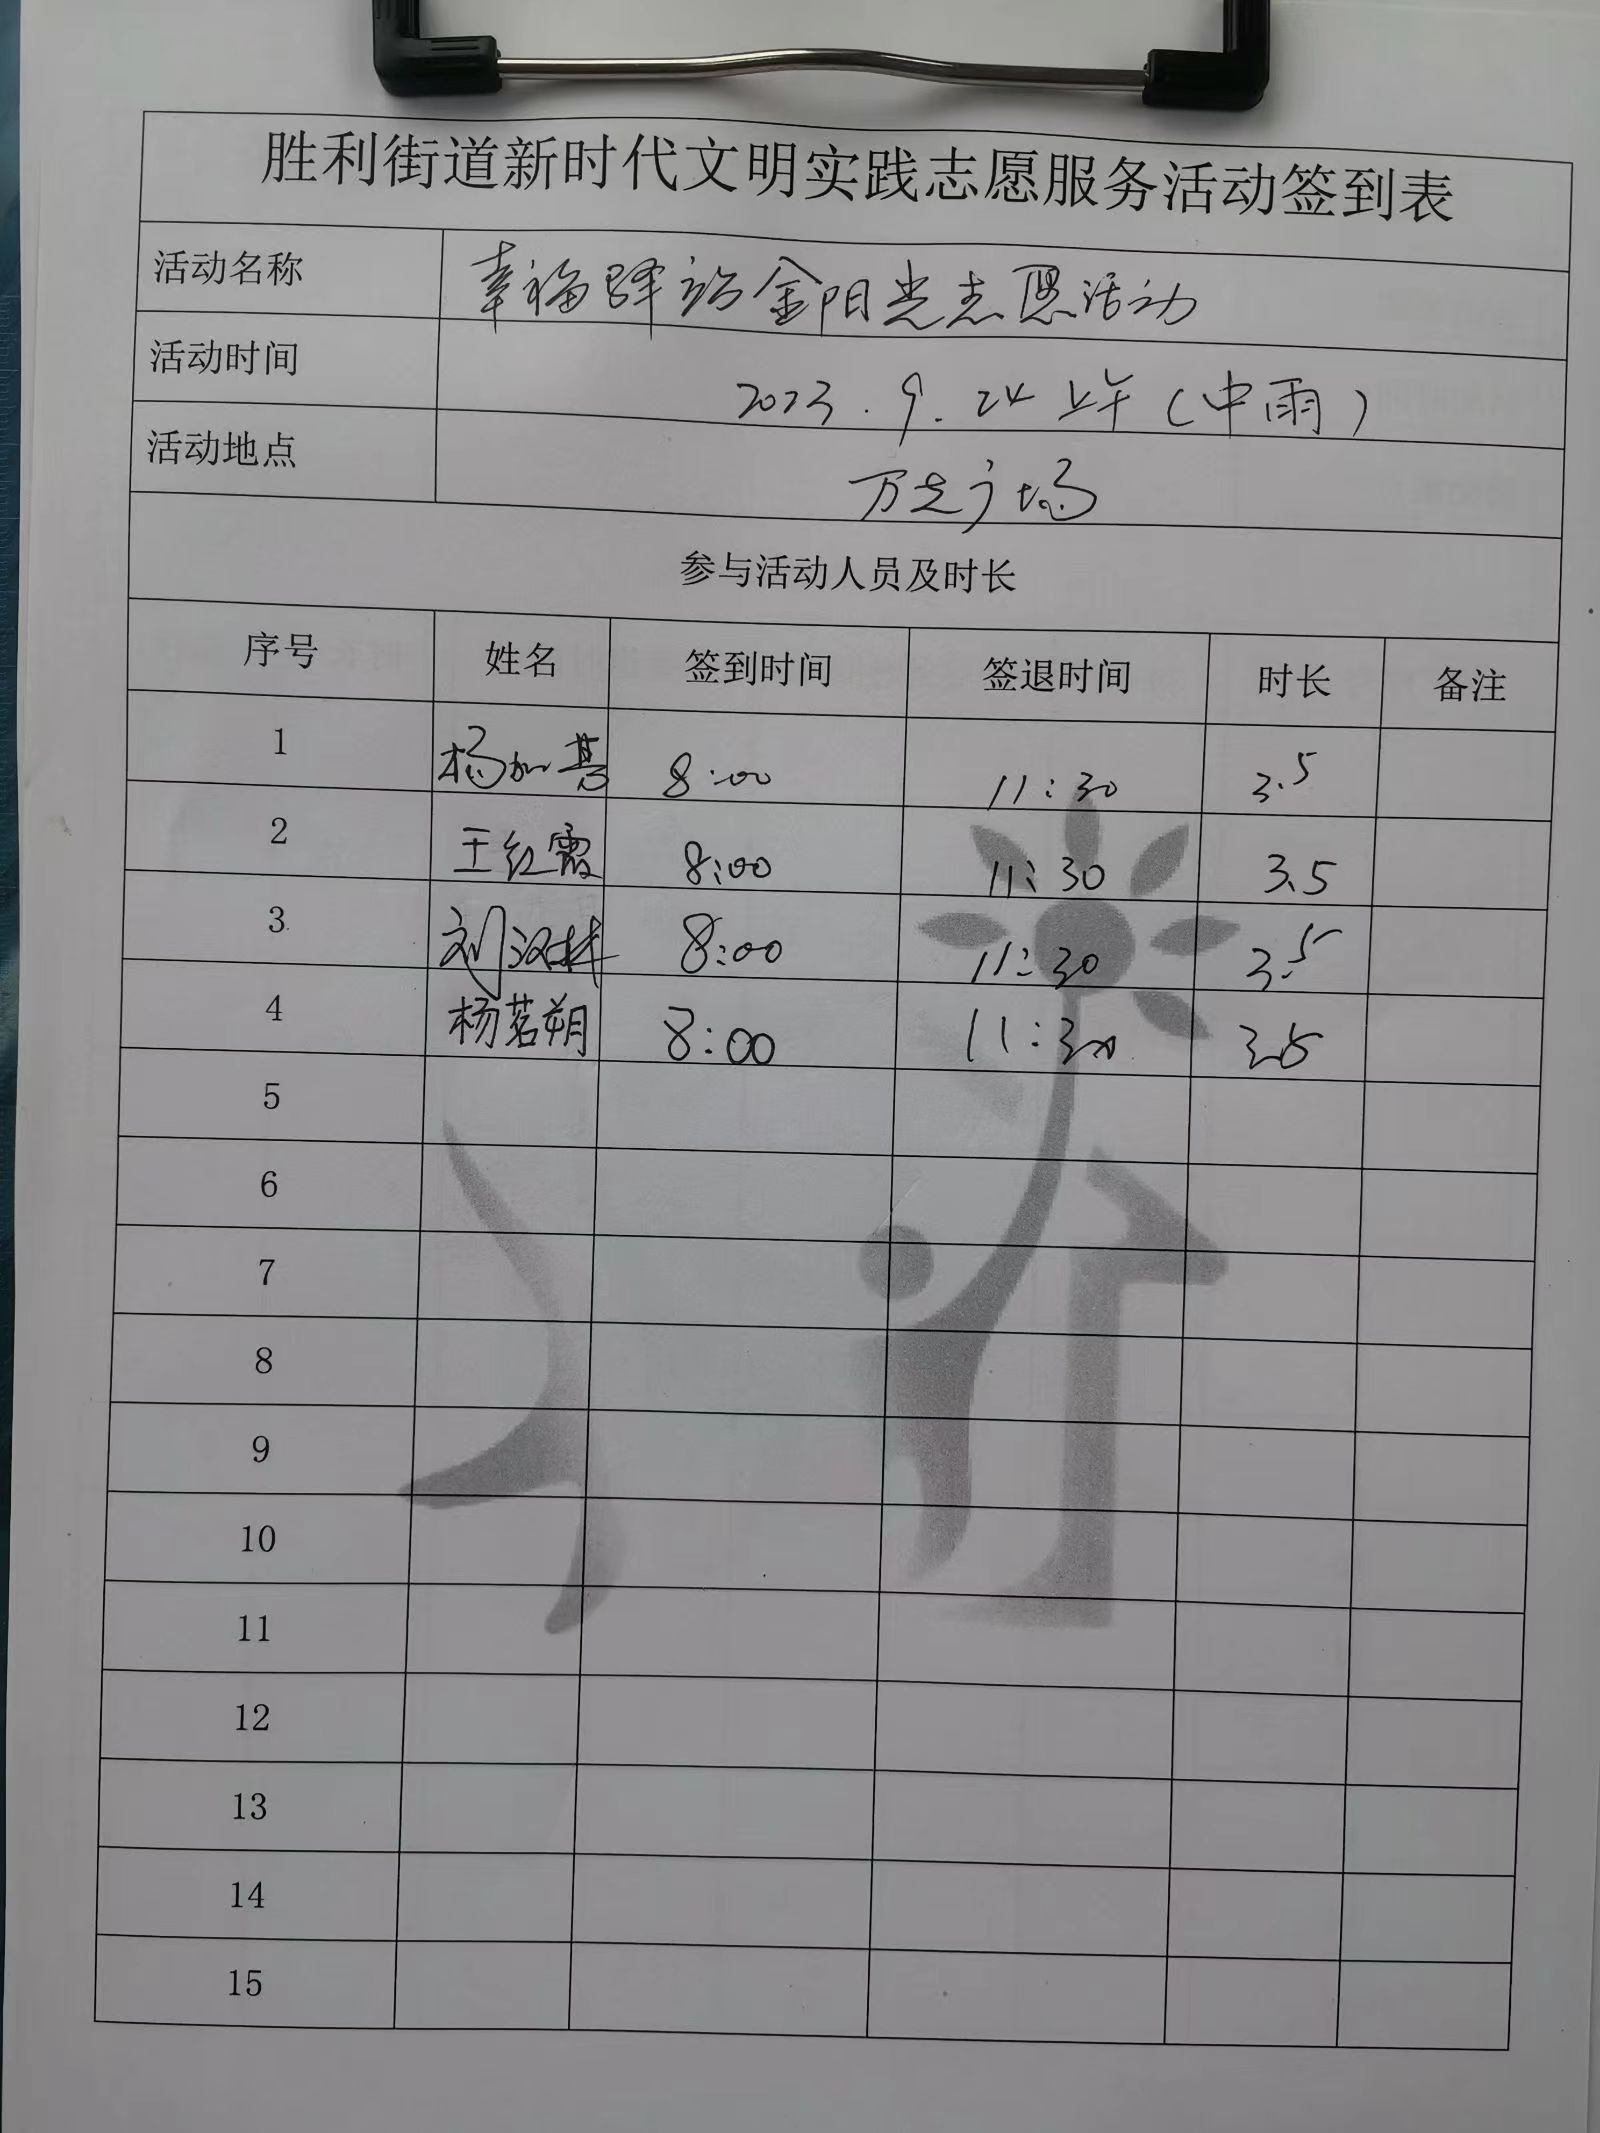 胜利街道新时代文明实践志愿服务活动签到表
活动名称 幸福驿站金阳光志愿活动
活动时间 2023.9.24上午(中雨)
活动地点 万达广场
参与活动人员及时长
序号 姓名 签到时间 签退时间 时长 备注
1 杨加 8:00 11:30 3.5
2 王红霞 8:00 11:30 3.5
3 刘汉林 8:00 11:30 3.5
4 杨茗朔 8:00 11:30 3.5
5
6
7
8
9
10
11
12
13
14
15